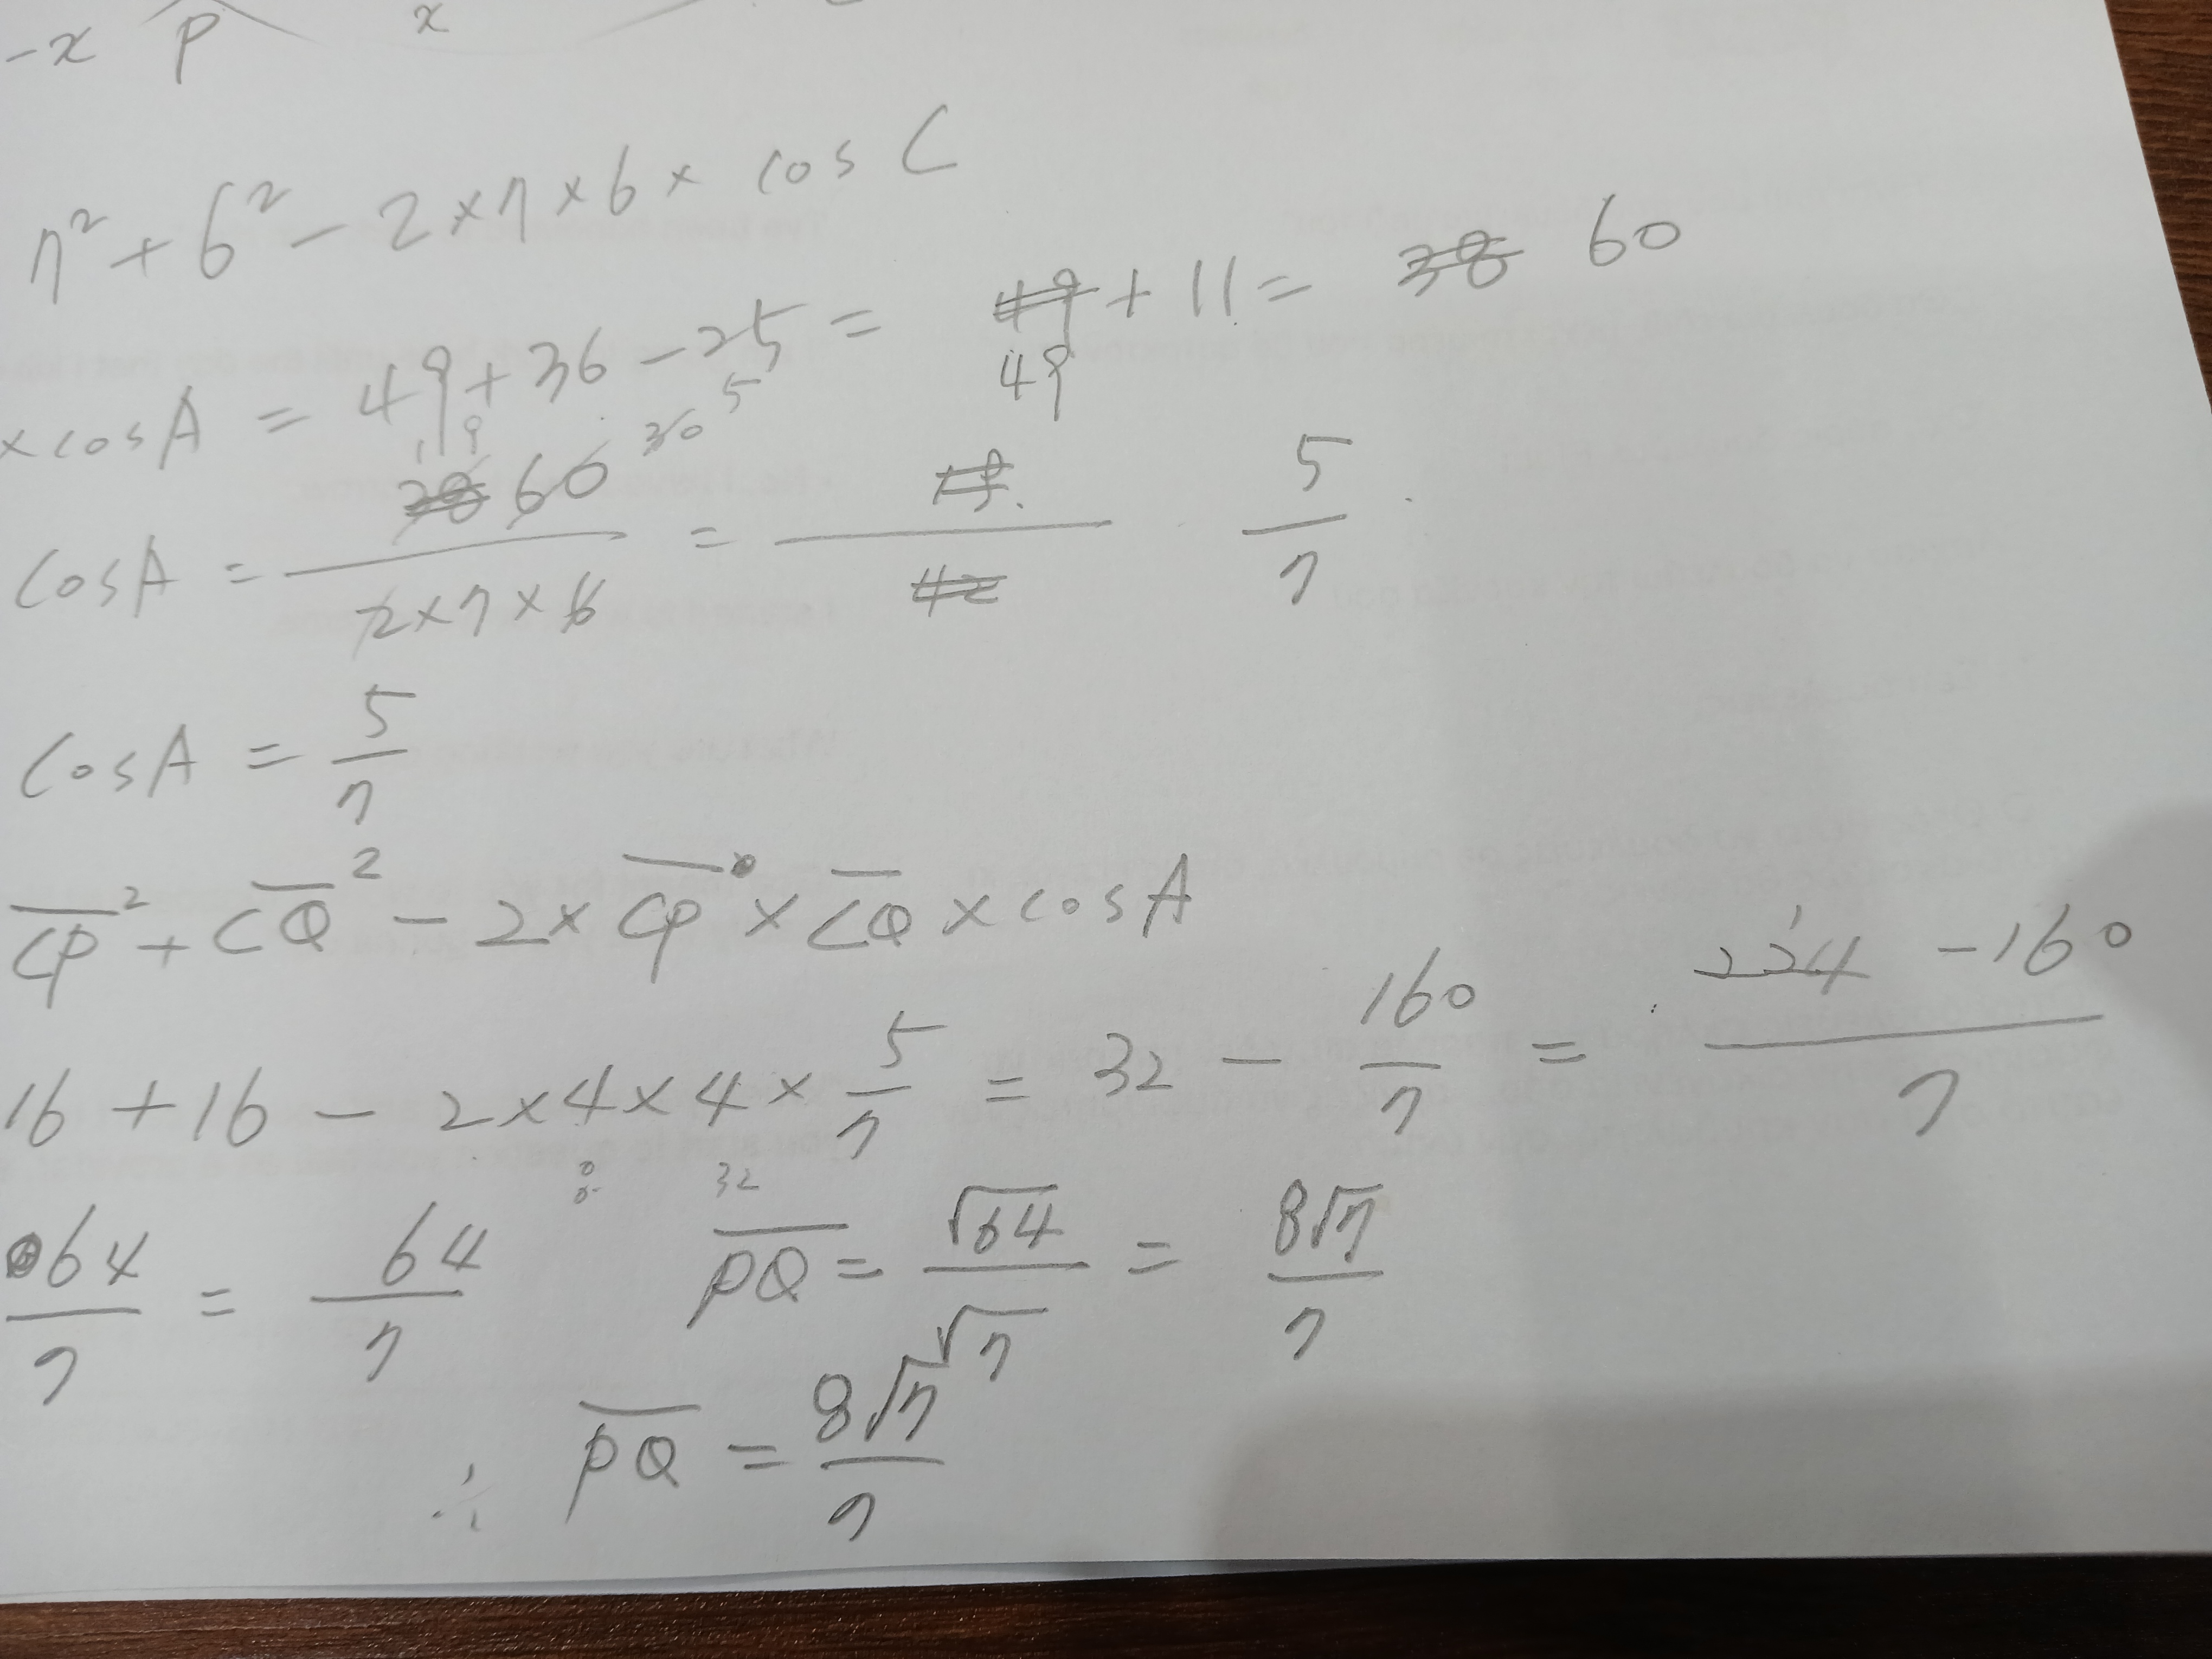 -x P x
7² + 6² - 2×7×6× cos C
× cosA = 49+36-25 = 49 + 11 = 38 60
49
19 30 5
cosA = 38 60 / 2×7×6 = / 42 5/7
cosA = 5/7
CP² + CQ² - 2× CP × CQ × cosA
16 + 16 - 2×4×4× 5/7 = 32 - 160/7 = 224 - 160 / 7
32
64/7 = 64/7 PQ = √64/√7 = 8√7/7
∴ PQ = 8√7/7